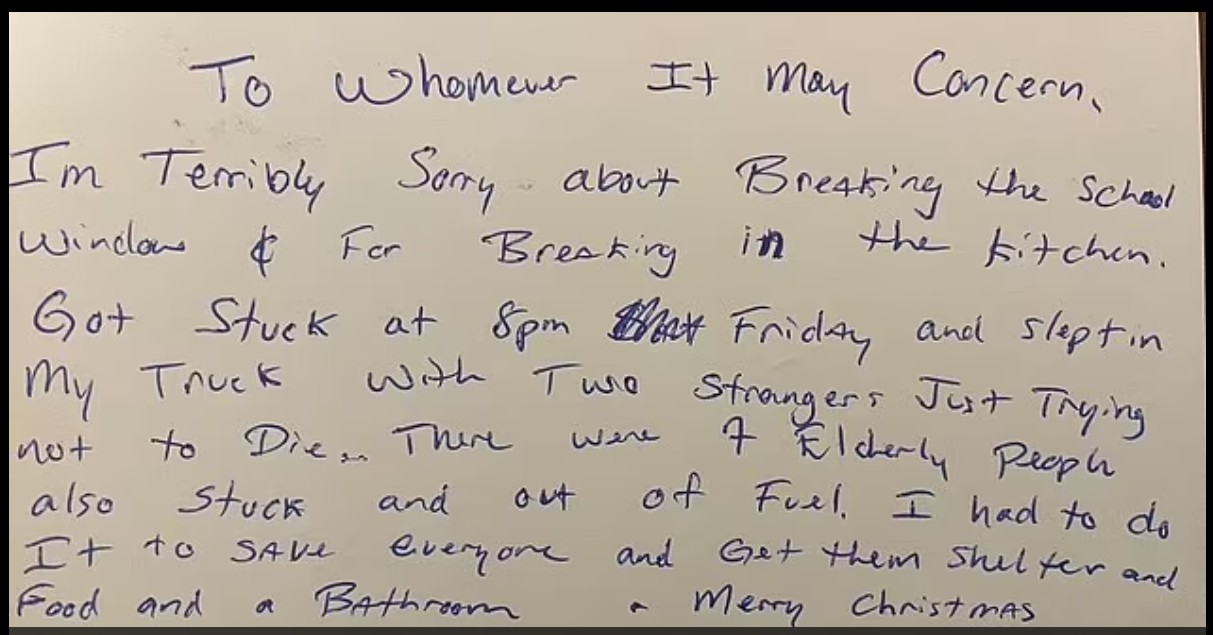 To Whomever It May Concern,
I'm Terribly Sorry about Breaking the School
Window & For Breaking in the Kitchen.
Got Stuck at 8pm Friday and slept in
My Truck with Two Strangers Just Trying
not to Die... There were 7 Elderly People
also Stuck and out of Fuel. I had to do
It to SAVE everyone and Get them Shelter and
Food and a Bathroom - Merry Christmas